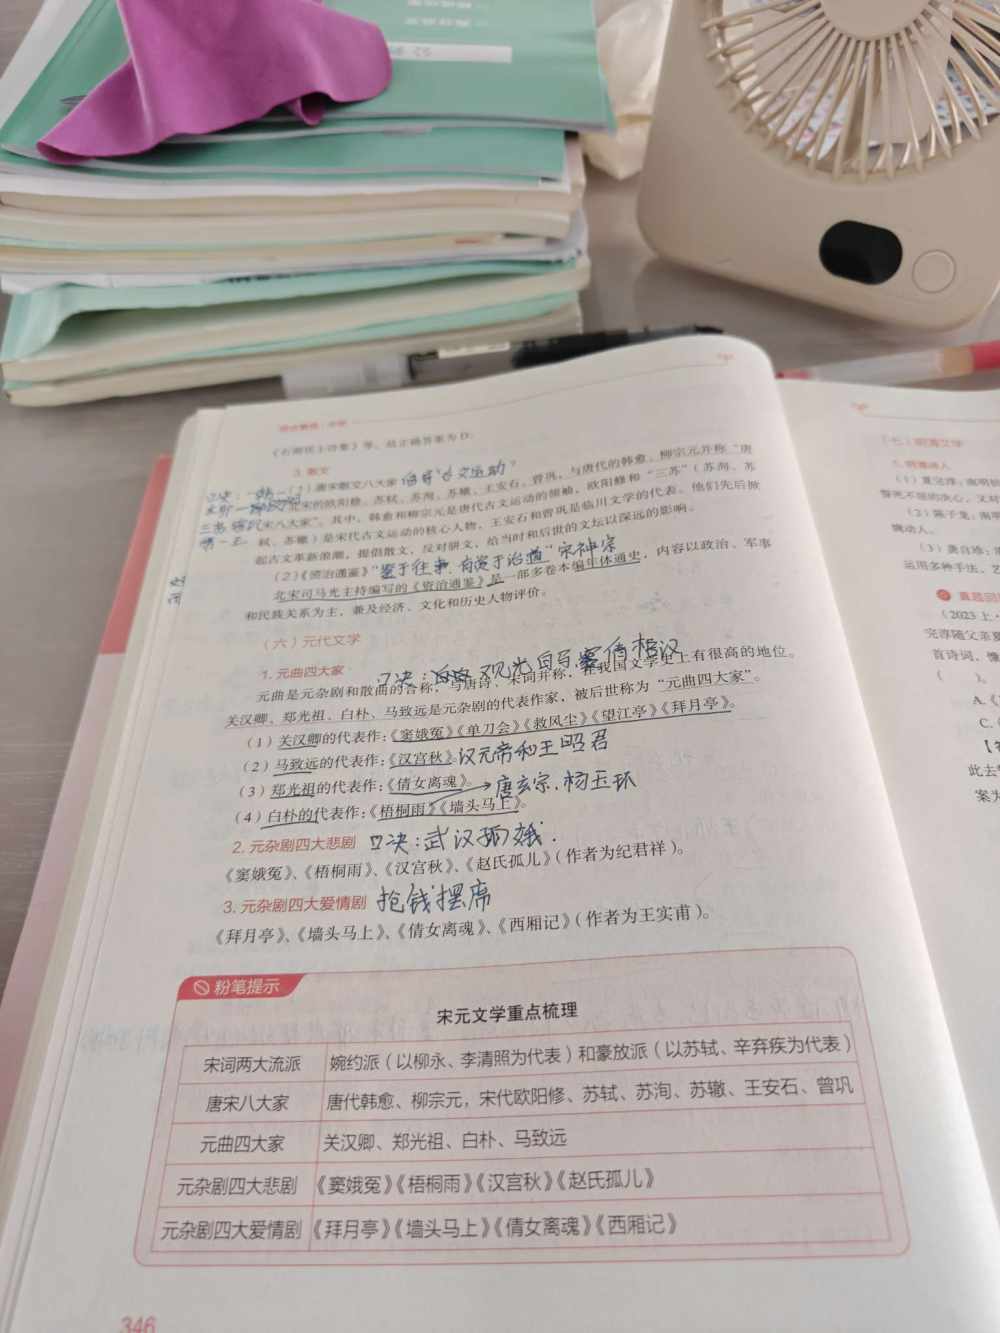 《石湖居士诗集》等。故正确答案为 D。
3. 散文
(1)唐宋散文八大家 倡导“古文运动”
北宋的欧阳修、苏轼、苏洵、苏辙、王安石、曾巩，与唐代的韩愈、柳宗元并称“唐
宋八大家”。其中，韩愈和柳宗元是唐代古文运动的领袖，欧阳修和“三苏”(苏洵、苏
轼、苏辙)是宋代古文运动的核心人物，王安石和曾巩是临川文学的代表。他们先后掀
起古文革新浪潮，提倡散文，反对骈文，给当时和后世的文坛以深远的影响。
(2)《资治通鉴》“鉴于往事，有资于治道”宋神宗
北宋司马光主持编写的《资治通鉴》是一部多卷本编年体通史，内容以政治、军事
和民族关系为主，兼及经济、文化和历史人物评价。
(六)元代文学
1. 元曲四大家
元曲是元杂剧和散曲的合称，与唐诗、宋词并称，在我国文学史上有很高的地位。
关汉卿、郑光祖、白朴、马致远是元杂剧的代表作家，被后世称为“元曲四大家”。
(1)关汉卿的代表作：《窦娥冤》《单刀会》《救风尘》《望江亭》《拜月亭》。
(2)马致远的代表作：《汉宫秋》。汉元帝和王昭君
(3)郑光祖的代表作：《倩女离魂》。
唐玄宗、杨玉环
(4)白朴的代表作：《梧桐雨》《墙头马上》。
2. 元杂剧四大悲剧 口决：武汉孤娥.
《窦娥冤》、《梧桐雨》、《汉宫秋》、《赵氏孤儿》(作者为纪君祥)。
3. 元杂剧四大爱情剧 抢钱摆席
《拜月亭》、《墙头马上》、《倩女离魂》、《西厢记》(作者为王实甫)。
粉笔提示
宋元文学重点梳理
宋词两大流派 婉约派（以柳永、李清照为代表）和豪放派（以苏轼、辛弃疾为代表）
唐宋八大家 唐代韩愈、柳宗元，宋代欧阳修、苏轼、苏洵、苏辙、王安石、曾巩
元曲四大家 关汉卿、郑光祖、白朴、马致远
元杂剧四大悲剧 《窦娥冤》《梧桐雨》《汉宫秋》《赵氏孤儿》
元杂剧四大爱情剧 《拜月亭》《墙头马上》《倩女离魂》《西厢记》
346
(七)明清文学
1. 明清诗人
(1)夏完淳：南明
(2)陈子龙：南明
(3)龚自珍：
运用多种手法，
真题回
(2023 上·
完淳随父
首诗词，
(　　)。
A.《
C.
此去
案为